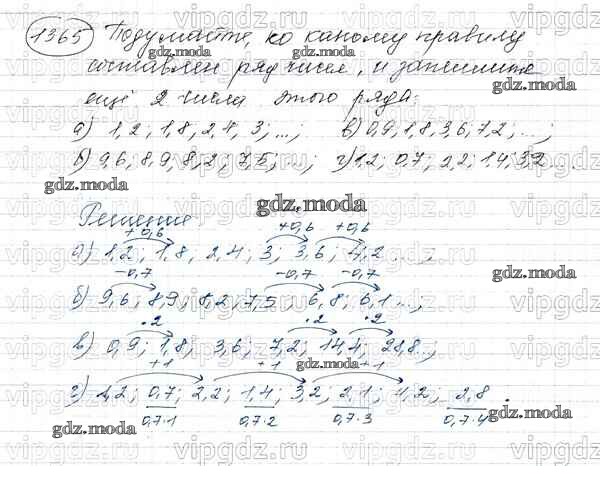 1365 Подумайте, по какому правилу
составлен ряд чисел, и запишите
ещё 2 числа этого ряда:
а) 1,2; 1,8; 2,4; 3; ...; в) 0,9; 1,8; 3,6; 7,2; ...;
б) 9,6; 8,9; 8,2; 7,5; ...; г) 1,2; 0,7; 2,2; 1,4; 3,2
gdz.moda
Решение:
+0,6 +0,6 +0,6
а) 1,2; 1,8; 2,4; 3; 3,6; 4,2 ...;
-0,7 -0,7 -0,7
б) 9,6; 8,9; 8,2; 7,5; 6,8; 6,1 ...;
·2 ·2 ·2
в) 0,9; 1,8; 3,6; 7,2; 14,4; 28,8...;
+1 +1 +1
г) 1,2; 0,7; 2,2; 1,4; 3,2; 2,1; 4,2; 2,8.
0,7·1 0,7·2 0,7·3 0,7·4